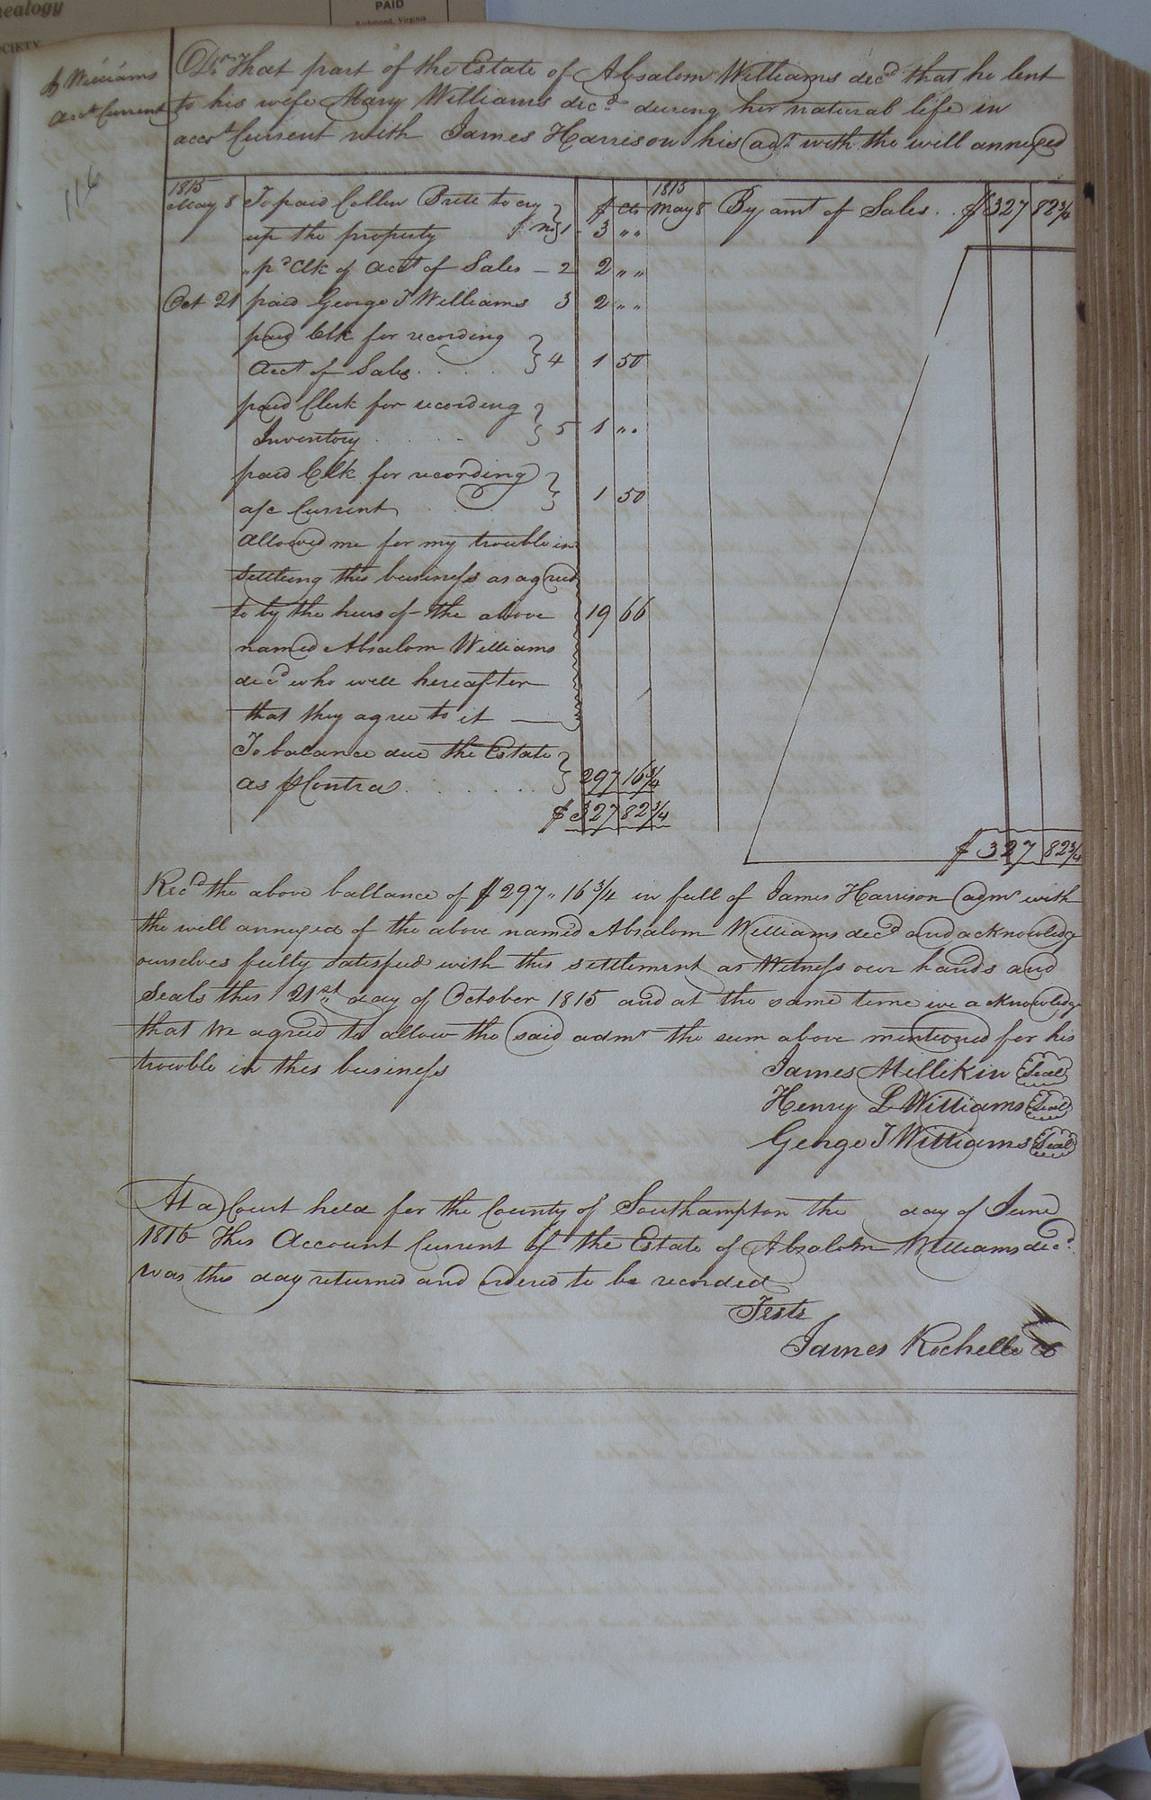 nealogy
OCIETY
PAID
Richmond, Virginia
A Williams
acct Current
116
Dr. That part of the Estate of Absalom Williams decd that he lent
to his wife Mary Williams decd during her natural life in
acct Current with James Harrison his adr with the will annexed
1815 $ cts 1815
May 8 To paid Collen Brett to cry May 8 By amt of Sales .. $327 82 3/4
up the property } no 1 3 " "
" pd Clk of Acct of Sales — 2 2 " "
Oct 21 paid George T Williams 3 2 " "
paid Clk for recording
Acct of Sales . . . . } 4 1 50
paid Clerk for recording
Inventory . . . . } 5 1 " "
paid Clk for recording
a/c Current . . } 1 50
allowed me for my trouble in
settling this business as agreed
to by the heirs of the above 19 66
named Absalom Williams
decd who will hereafter
that they agree to it —
To balance due the Estate
as p Contra . . . . . . } 297 16 3/4
$327 82 3/4
$327 82 3/4
Recd the above ballance of $297 " 16 3/4 in full of James Harrison admr with
the will annexed of the above named Absalom Williams decd and acknowledge
ourselves fully satisfied with this settlement as Witness our hands and
Seals this 21st day of October 1815 and at the same time we acknowledge
that we agreed to allow the said admr the sum above mentioned for his
trouble in this business
James Millikin Seal
Henry L Williams Seal
George T Williams Seal
At a Court held for the County of Southampton the day of June
1816 This Account Current of the Estate of Absalom Williams decd
was this day returned and ordered to be recorded
Teste
James Rochelle